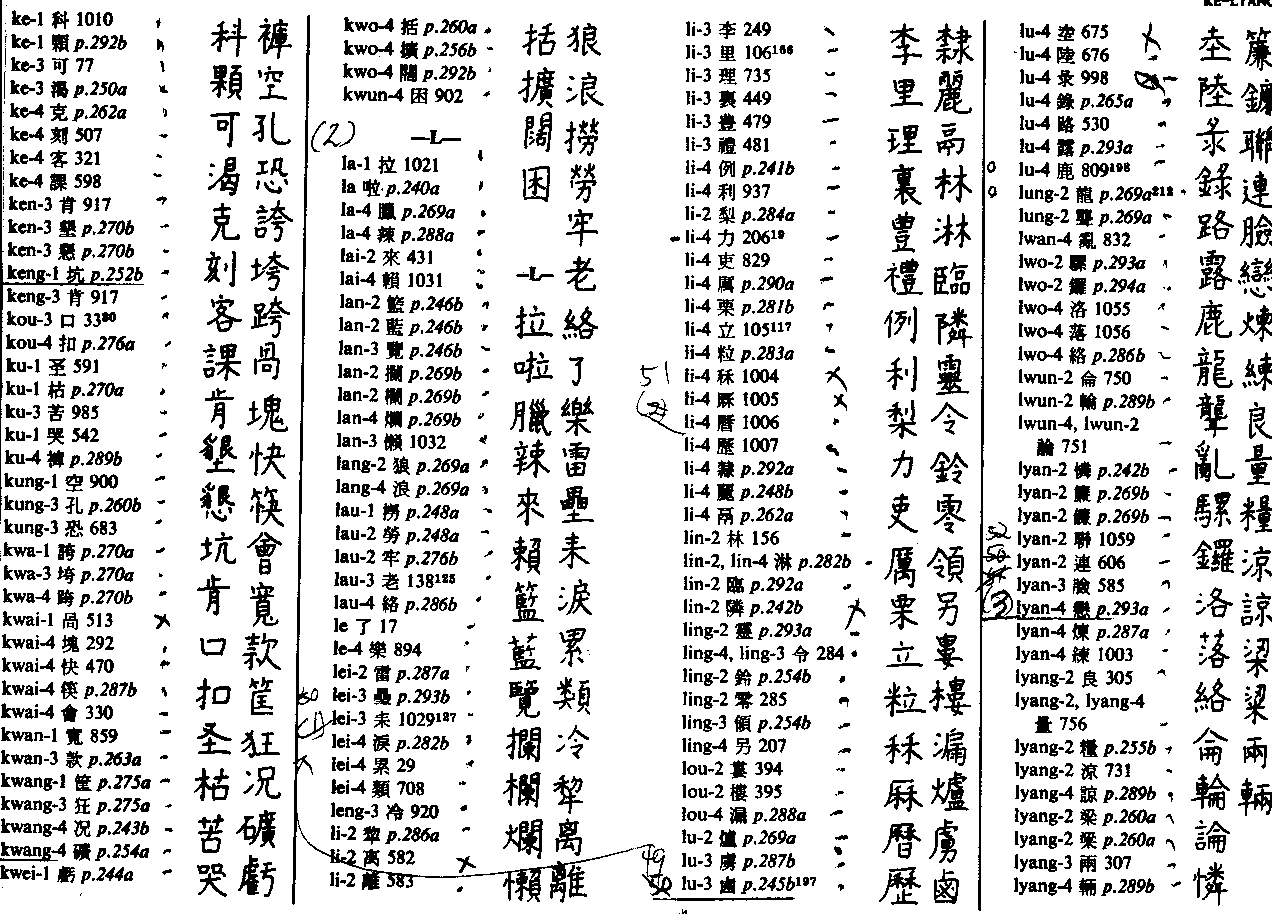 KE–LYANG
ke-1 科 1010
ke-1 顆 p.292b
ke-3 可 77
ke-3 渴 p.250a
ke-4 克 p.262a
ke-4 刻 507
ke-4 客 321
ke-4 課 598
ken-3 肯 917
ken-3 墾 p.270b
ken-3 懇 p.270b
keng-1 坑 p.252b
keng-3 肯 917
kou-3 口 33
kou-4 扣 p.276a
ku-1 圣 591
ku-1 枯 p.270a
ku-3 苦 985
ku-1 哭 542
ku-4 褲 p.289b
kung-1 空 900
kung-3 孔 p.260b
kung-3 恐 683
kwa-1 誇 p.270a
kwa-3 垮 p.270a
kwa-4 跨 p.270b
kwai-1 咼 513
kwai-4 塊 292
kwai-4 快 470
kwai-4 筷 p.287b
kwai-4 會 330
kwan-1 寬 859
kwan-3 款 p.263a
kwang-1 筐 p.275a
kwang-3 狂 p.275a
kwang-4 况 p.243b
kwang-4 礦 p.254a
kwei-1 虧 p.244a
科 褲
顆 空
可 孔
渴 恐
克 誇
刻 垮
客 跨
課 咼
肯 塊
墾 快
懇 筷
坑 會
肯 寬
口 款
扣 筐
圣 狂
枯 况
苦 礦
哭 虧
kwo-4 括 p.260a
kwo-4 擴 p.256b
kwo-4 闊 p.292b
kwun-4 困 902
(2) —L—
la-1 拉 1021
la 啦 p.240a
la-4 臘 p.269a
la-4 辣 p.288a
lai-2 來 431
lai-4 賴 1031
lan-2 籃 p.246b
lan-2 藍 p.246b
lan-3 覽 p.246b
lan-2 攔 p.269b
lan-2 欄 p.269b
lan-4 爛 p.269b
lan-3 懶 1032
lang-2 狼 p.269a
lang-4 浪 p.269a
lau-1 撈 p.248a
lau-2 勞 p.248a
lau-2 牢 p.276b
lau-3 老 138
lau-4 絡 p.286b
le 了 17
le-4 樂 894
lei-2 雷 p.287a
lei-3 壘 p.293b
lei-3 耒 1029
lei-4 淚 p.282b
lei-4 累 29
lei-4 類 708
leng-3 冷 920
li-2 犂 p.286a
li-2 离 582
li-2 離 583
括 狼
擴 浪
闊 撈
困 勞
牢
–L– 老
拉 絡
啦 了
臘 樂
辣 雷
來 壘
賴 耒
籃 淚
藍 累
覽 類
攔 冷
欄 犂
爛 离
懶 離
li-3 李 249
li-3 里 106
li-3 理 735
li-3 裏 449
li-3 豊 479
li-3 禮 481
li-4 例 p.241b
li-4 利 937
li-2 梨 p.284a
li-4 力 206
li-4 吏 829
li-4 厲 p.290a
li-4 栗 p.281b
li-4 立 105
li-4 粒 p.283a
li-4 秝 1004
li-4 厤 1005
li-4 曆 1006
li-4 歷 1007
li-4 隸 p.292a
li-4 麗 p.248b
li-4 鬲 p.262a
lin-2 林 156
lin-2, lin-4 淋 p.282b
lin-2 臨 p.292a
lin-2 隣 p.242b
ling-2 靈 p.293a
ling-4, ling-3 令 284
ling-2 鈴 p.254b
ling-2 零 285
ling-3 領 p.254b
ling-4 另 207
lou-2 婁 394
lou-2 樓 395
lou-4 漏 p.288a
lu-2 爐 p.269a
lu-3 虜 p.287b
lu-3 鹵 p.245b
李 隸
里 麗
理 鬲
裏 林
豊 淋
禮 臨
例 隣
利 靈
梨 令
力 鈴
吏 零
厲 領
栗 另
立 婁
粒 樓
秝 漏
厤 爐
曆 虜
歷 鹵
lu-4 坴 675
lu-4 陸 676
lu-4 彔 998
lu-4 錄 p.265a
lu-4 路 530
lu-4 露 p.293a
lu-4 鹿 809
lung-2 龍 p.269a
lung-2 聾 p.269a
lwan-4 亂 832
lwo-2 騾 p.293a
lwo-2 鑼 p.294a
lwo-4 洛 1055
lwo-4 落 1056
lwo-4 絡 p.286b
lwun-2 侖 750
lwun-2 輪 p.289b
lwun-4, lwun-2
論 751
lyan-2 憐 p.242b
lyan-2 簾 p.269b
lyan-2 鐮 p.269b
lyan-2 聯 1059
lyan-2 連 606
lyan-3 臉 585
lyan-4 戀 p.293a
lyan-4 煉 p.287a
lyan-4 練 1003
lyang-2 良 305
lyang-2, lyang-4
量 756
lyang-2 糧 p.255b
lyang-2 涼 731
lyang-4 諒 p.289b
lyang-2 梁 p.260a
lyang-2 粱 p.260a
lyang-3 兩 307
lyang-4 輛 p.289b
坴 簾
陸 鐮
彔 聯
錄 連
路 臉
露 戀
鹿 煉
龍 練
聾 良
亂 量
騾 糧
鑼 涼
洛 諒
落 梁
絡 粱
侖 兩
輪 輛
論
憐